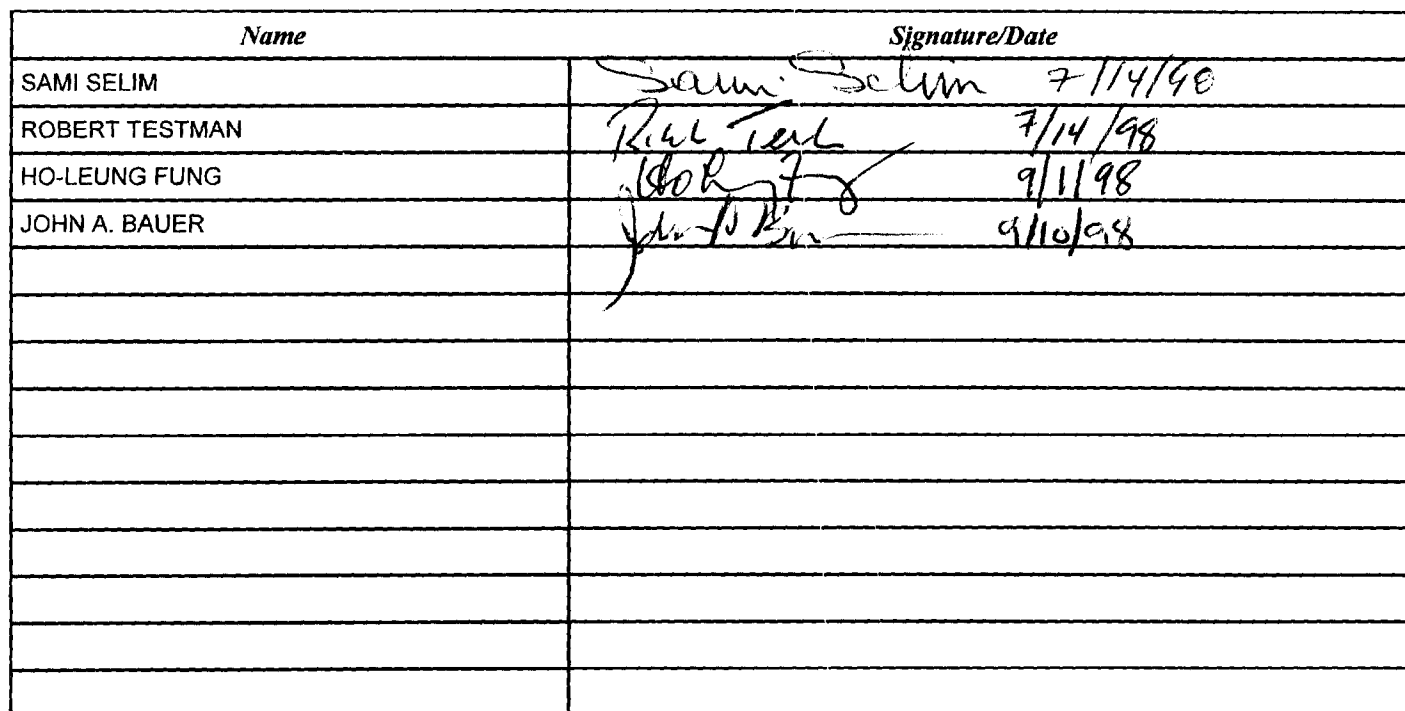 Name Signature/Date
SAMI SELIM Sami Selim 7/14/98
ROBERT TESTMAN 7/14/98
HO-LEUNG FUNG 9/1/98
JOHN A. BAUER 9/10/98